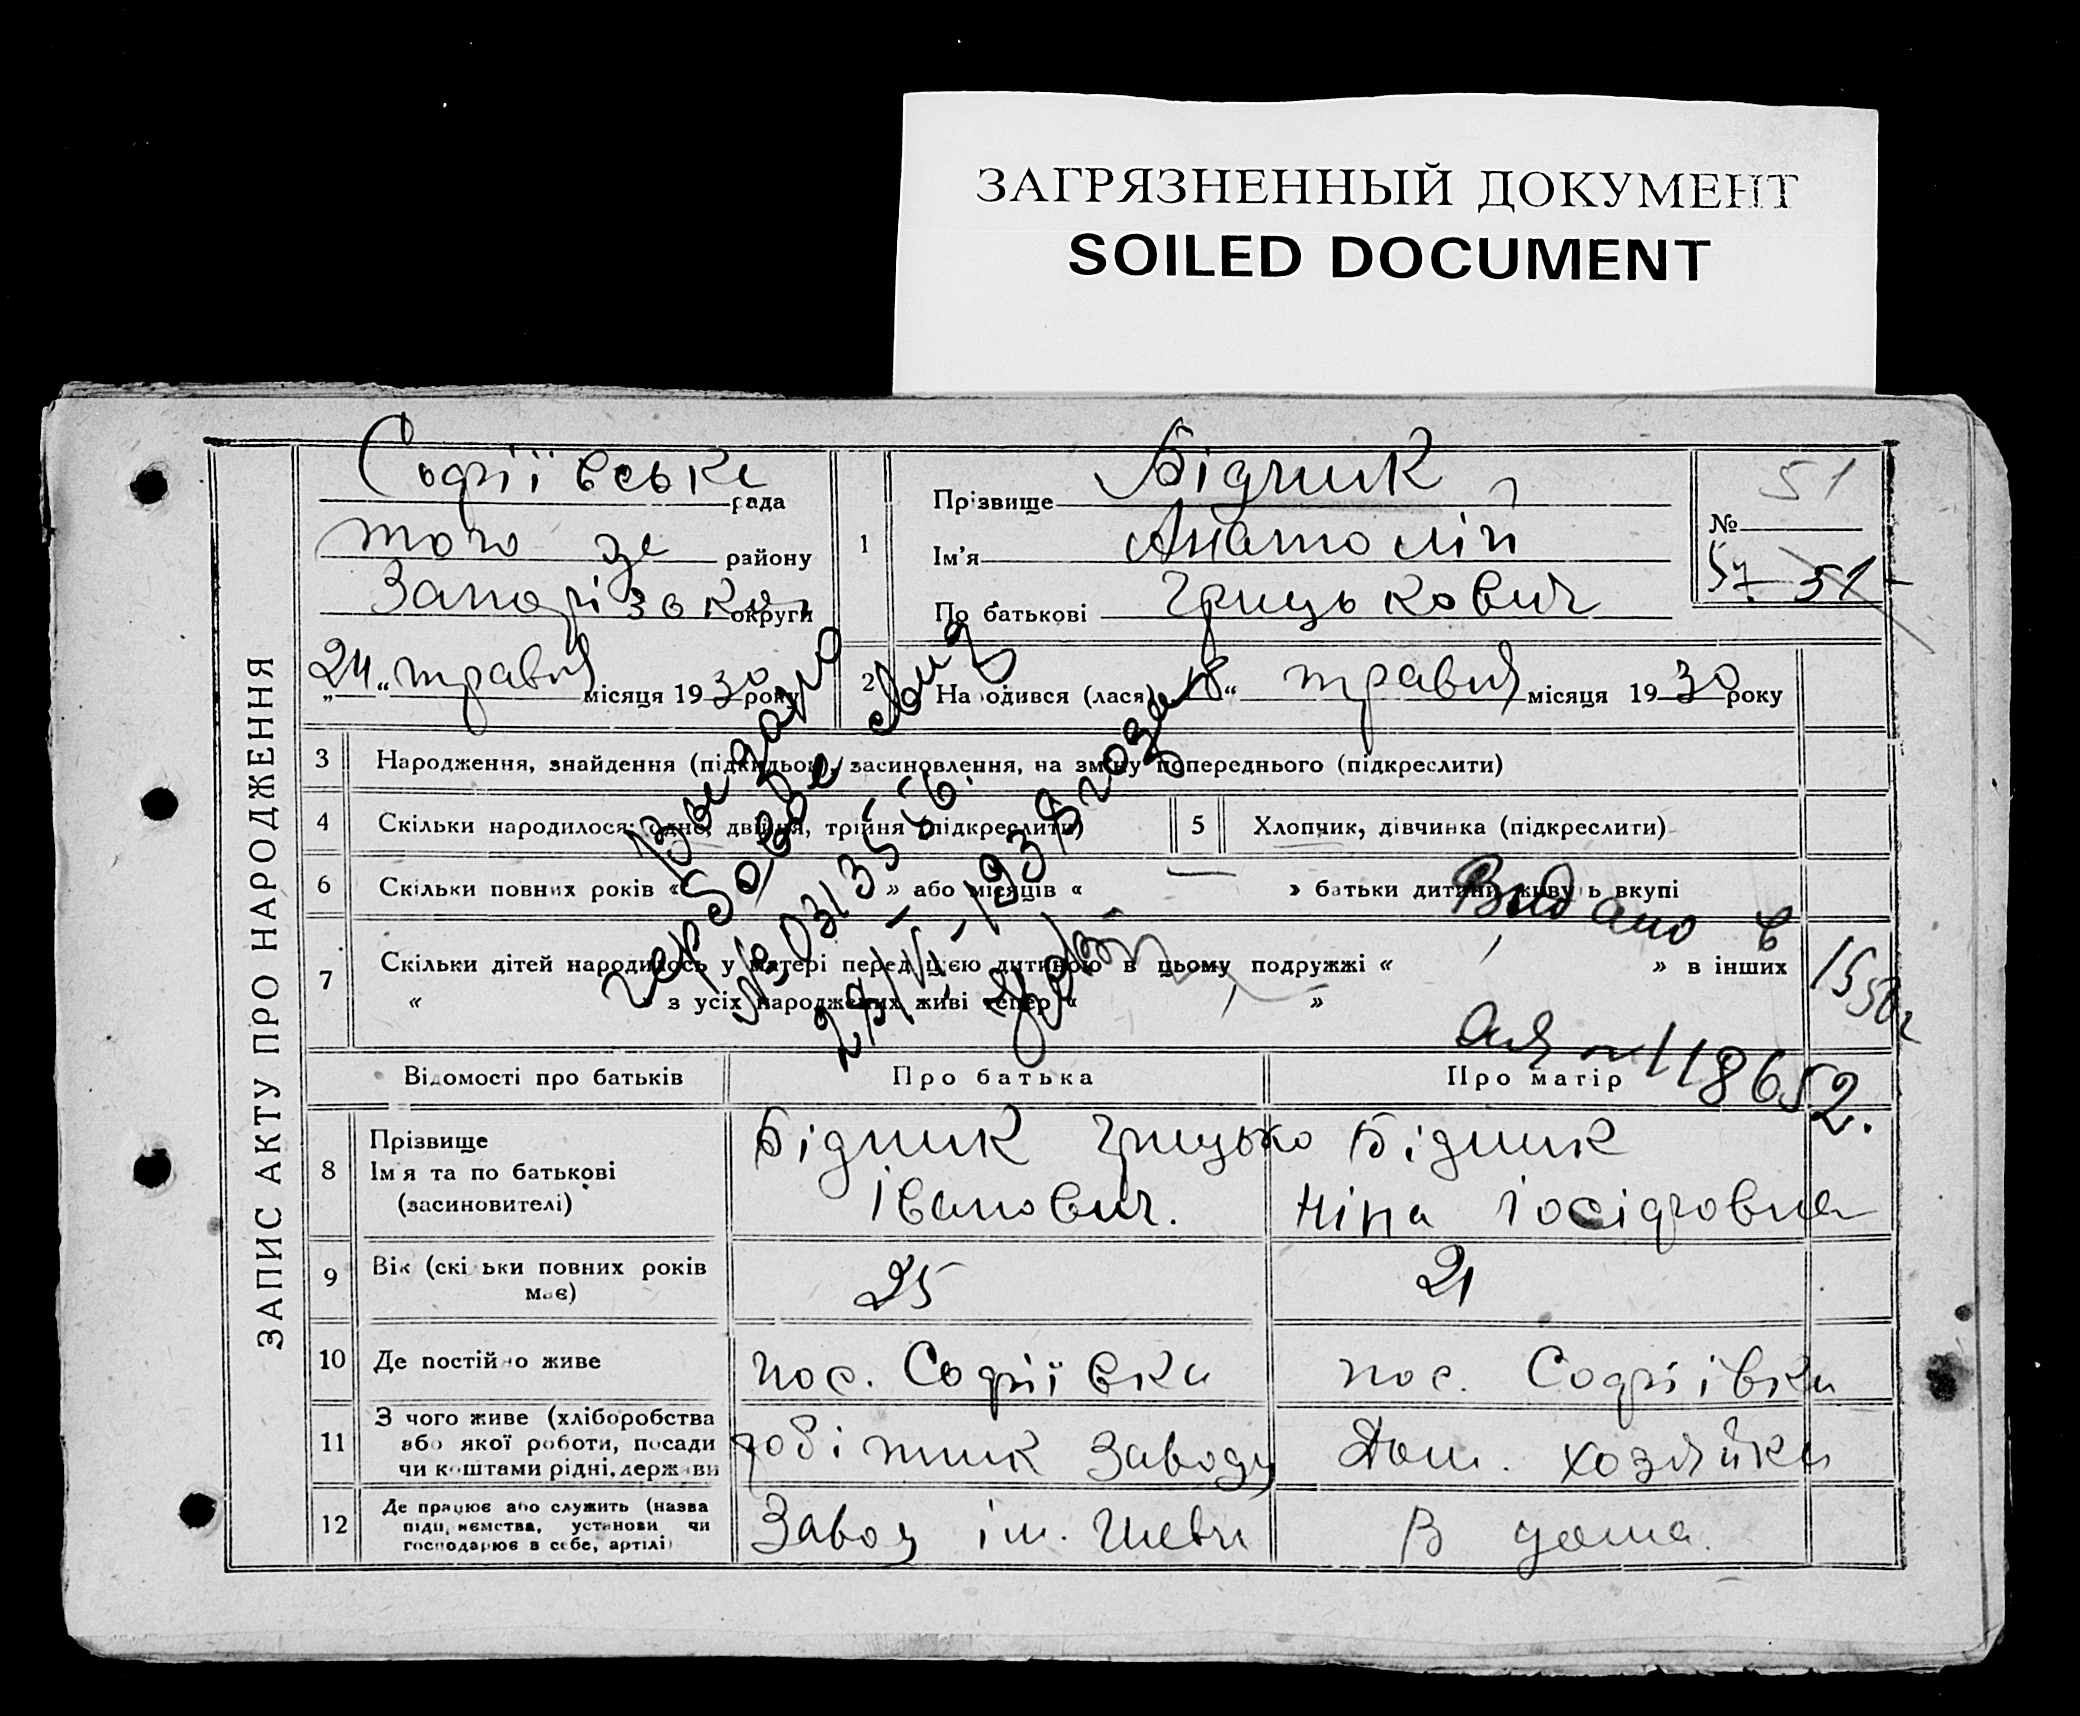 ЗАГРЯЗНЕННЫЙ ДОКУМЕНТ
SOILED DOCUMENT
ЗАПИС АКТУ ПРО НАРОДЖЕННЯ
Софіївська рада
того же району
Запорізька округи
„24“ травня місяця 1930 року
1
Прізвище Бідник
Ім’я Анатолій
По батькові Грицькович
51
№
57 51
2 Народився (лася) 18“ травня місяця 1930 року
3 Народження, знайдення (підкидьок), засиновлення, на зміну попереднього (підкреслити)
4 Скільки народилося: одно, двійня, трійня (підкреслити)
5 Хлопчик, дівчинка (підкреслити)
6 Скільки повних років « » або місяців « » батьки дитини живуть вкупі
7 Скільки дітей народилось у матері перед цією дитиною в цьому подружжі « » в інших
« » з усіх народжених живі тепер « »
Видано в
118652.
Відомості про батьків Про батька Про матір
8 Прізвище
Ім’я та по батькові
(засиновителі)
Бідник Грицько
Іванович.
Бідник
Ніна Іосіфовна
9 Вік (скільки повних років
має)
25
21
10 Де постійно живе
пос. Софіївка
пос. Софіївка
11 З чого живе (хліборобства
або якої роботи, посади
чи коштами рідні, держави
робітник заводу
Дом. хозяйка
12 Де працює або служить (назва
підприємства, установи чи
господарює в себе, артілі)
Завод ім. Шевч
В дома.